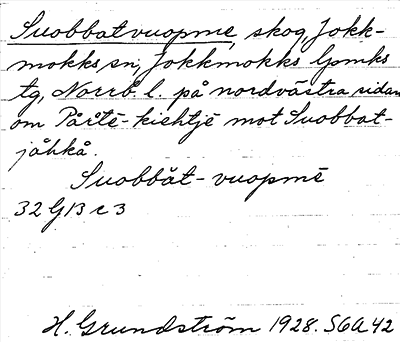 Suobbatvuopme, skog, Jokk-
mokks sn, Jokkmokks lpmks
tg, Norrb. l. på nordvästra sidan
om Pårte-kiehtjē mot Suobbat-
jåhkå.
Suobbăt-vuopmē
32 G 13 c 3
H. Grundström 1928. S6A42